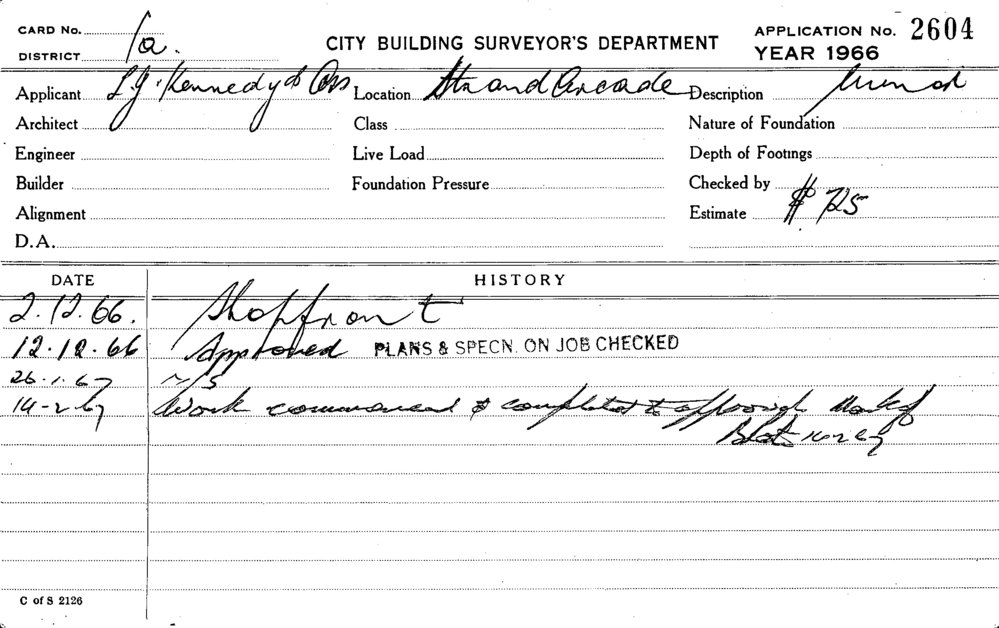 CARD No.
DISTRICT 1a.
CITY BUILDING SURVEYOR'S DEPARTMENT
APPLICATION No. 2604
YEAR 1966
Applicant L.J. Kennedy & Location Strand Arcade Description
Architect Class Nature of Foundation
Engineer Live Load Depth of Footings
Builder Foundation Pressure Checked by
Alignment Estimate $ 725
D.A.
DATE HISTORY
2.12.66. Shopfront
12.12.66 Approved PLANS & SPECN. ON JOB CHECKED
26.1.67 N/S
14-2-67 Work commenced & completed to approved
C of S 2126